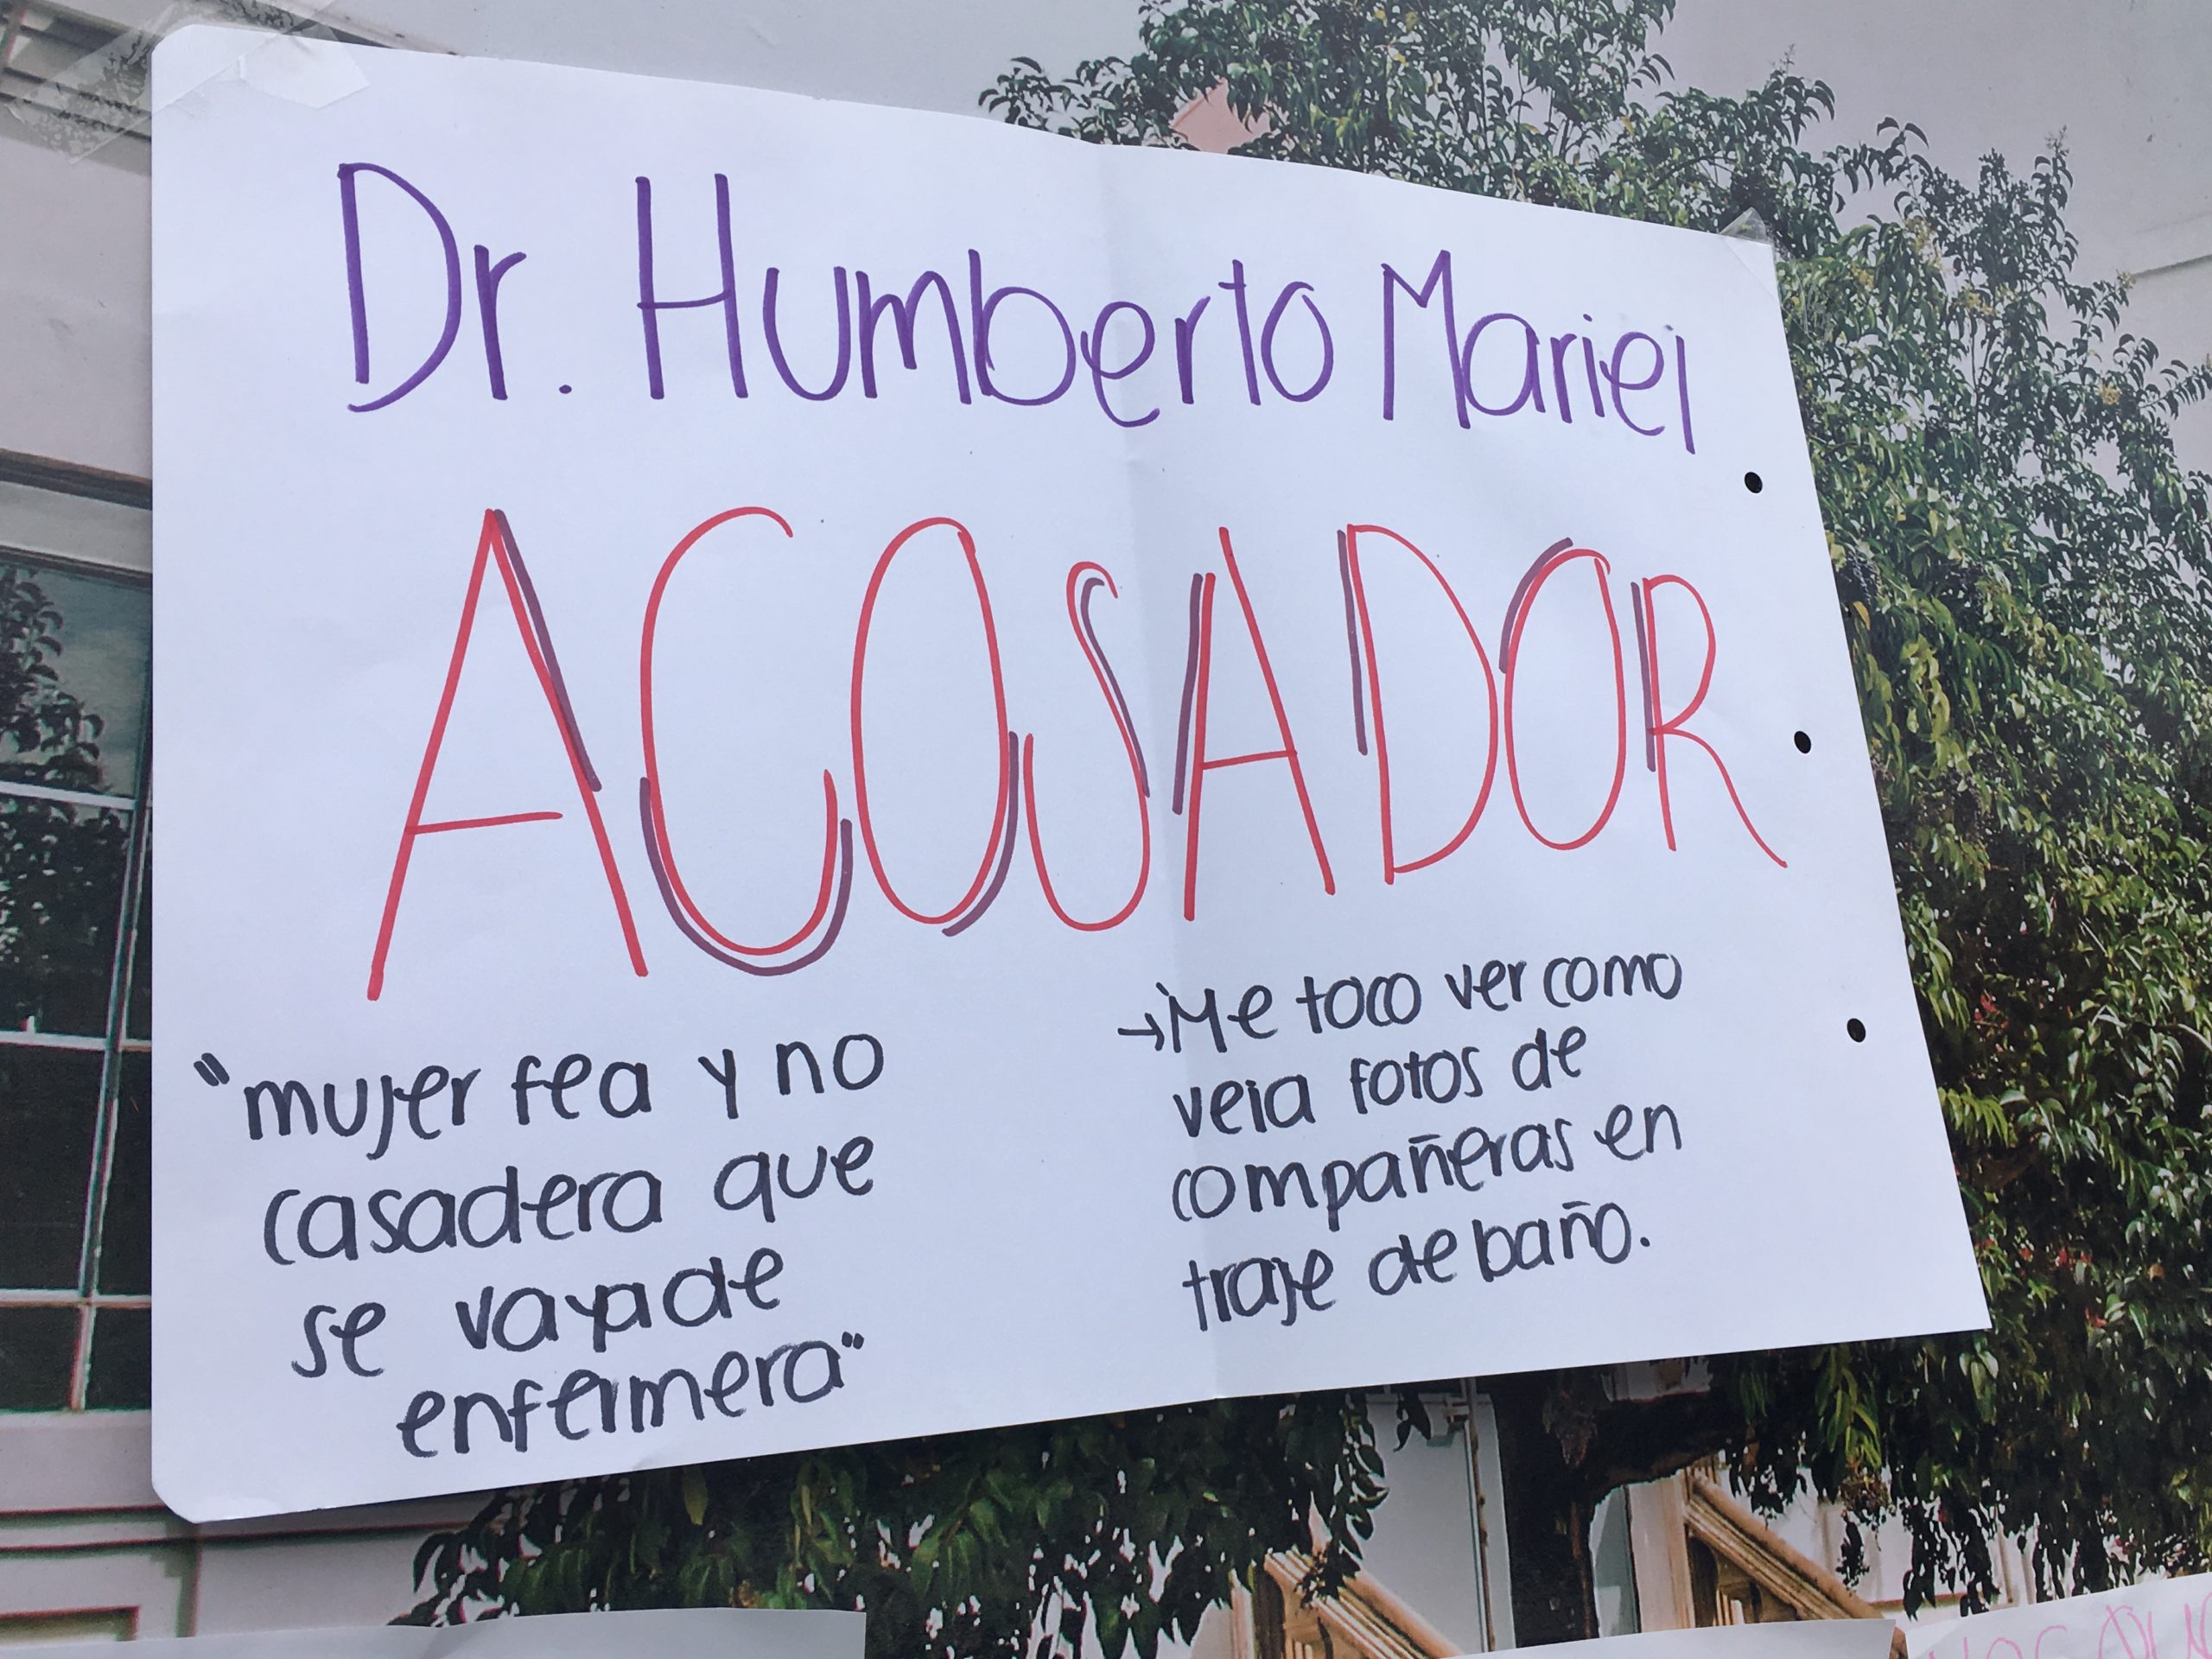 Dr. Humberto Mariel
ACOSADOR
"mujer fea y no
casadera que
se vaya de
enfermera"
→Me toco ver como
veia fotos de
compañeras en
traje de baño.